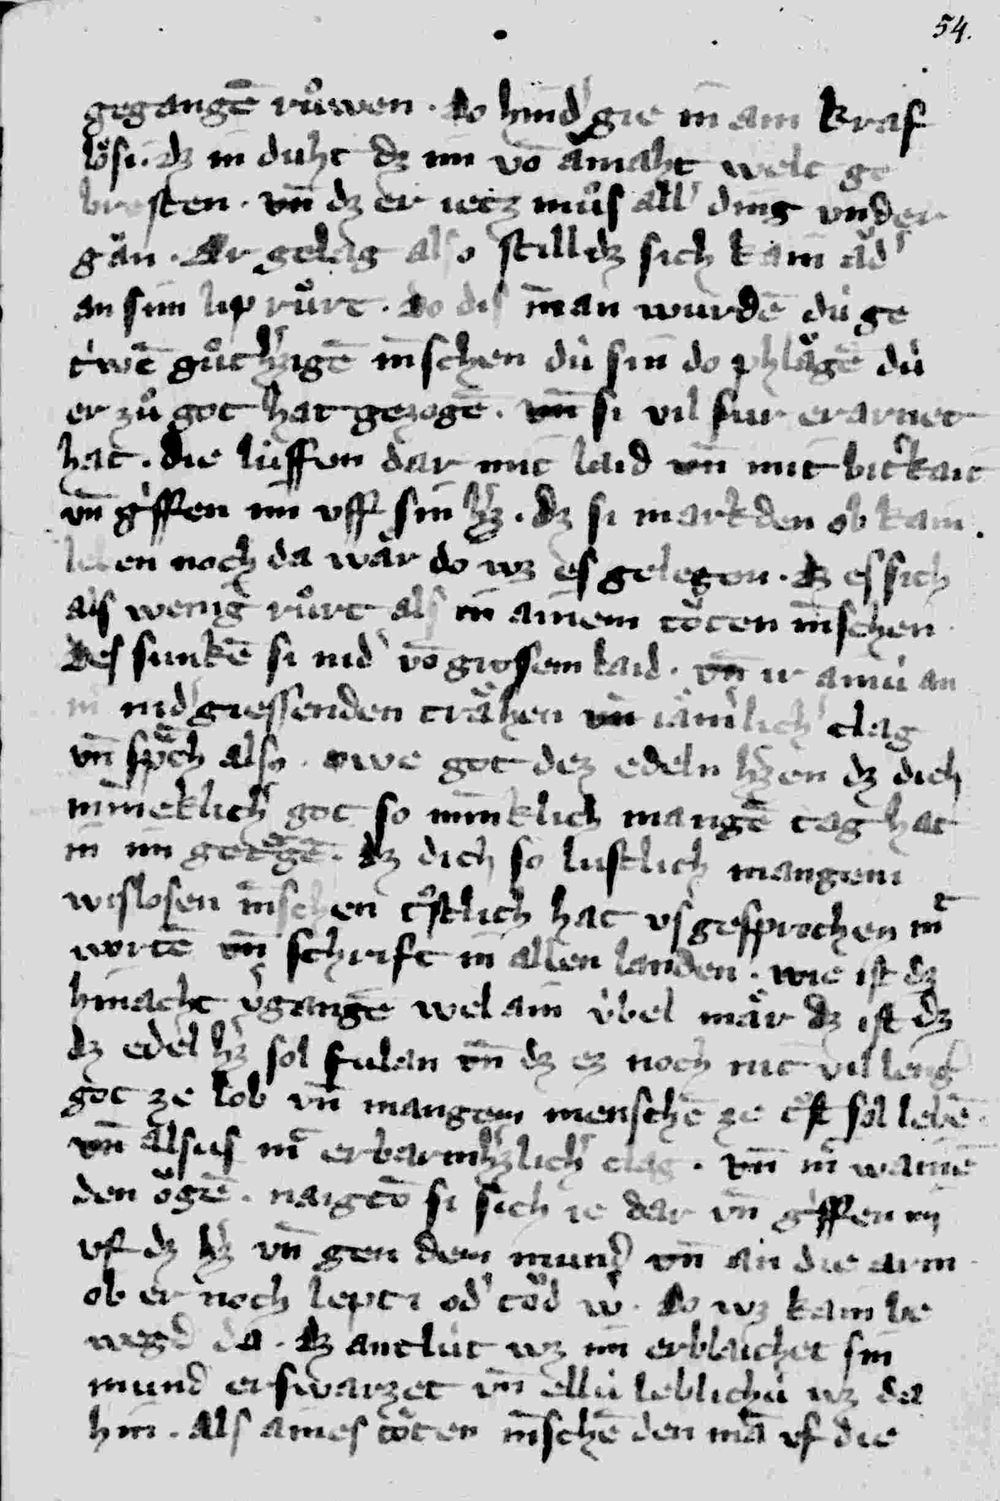 54.
gegangē růwen . do hindˀ gie in ain kraf
lösi . dz in duht dz im vō āmaht welt ge
bresten . vn̄ dz er iecz můs allˀ ding vnder
gān . Er gelag also still dz sich kain ādˀ
an sim lip růrt . do dis man wurdē dú ge
trúwē gůthˀzigē mēschen dú sin do phlägē dú
er zů got hat gezogē . vn̄ si vil sur erarnet
hat . die lúffen dar mit laid vn̄ mit bitˀkait
vn̄ gˀffen im vff sin hˀz . dz si markden ob kain
leben noch da wār do wz es gelegen . dz es sich
als wenig růrt als in ainem tōten mēschen
Des sunkē si nidˀ vō grossem laid . vn̄ ir ainú an
in nidˀ giessenden trähen vn̄ iāmˀlichˀ clag
vn̄ sprach also . owe got dez edeln hˀzen dz dich
minneklichˀ got so minklich mangē tag hat
in im getragē . dz dich so lustlich mangem
wislosen mēschen trostlich hat vsgesprochen mit
wortē vn̄ schrift in allen landen . wie ist dz
hinacht vˀgangē wel ain úbel mär dz ist dz
dz edel hˀz sol fulan vn̄ dz ez noch nit vil leng
got ze lob vn̄ mangem menschē ze trost sol lebē .
vn̄ alsus mit erbarmhˀzlichˀ clag . vn̄ mit wainē
den ōgē . naigtō si sich ie dar vn̄ gˀffen im
vf dz hˀz vn̄ gen dem mund vn̄ an die arm
ob er noch lepti odˀ tōd wˀ . do wz kain be
wegd da . dz antlút wz im erblaichet sin
mund erswarzet vn̄ ellú leblichú wz da
hin . als aines tōten mēschē den mā vf die